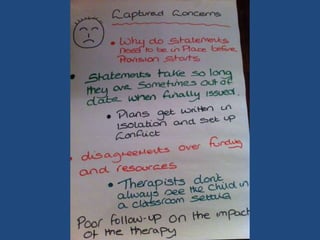 Captured Concerns
• Why do Statements
need to be in Place before
Provision Starts
• Statements take so long
they are sometimes out of
date when finally issued.
• Plans get written in
isolation and set up
Conflict
• disagreements over funding
and resources
• Therapists don't
always see the child in
a classroom setting
Poor follow-up on the impact
of the therapy